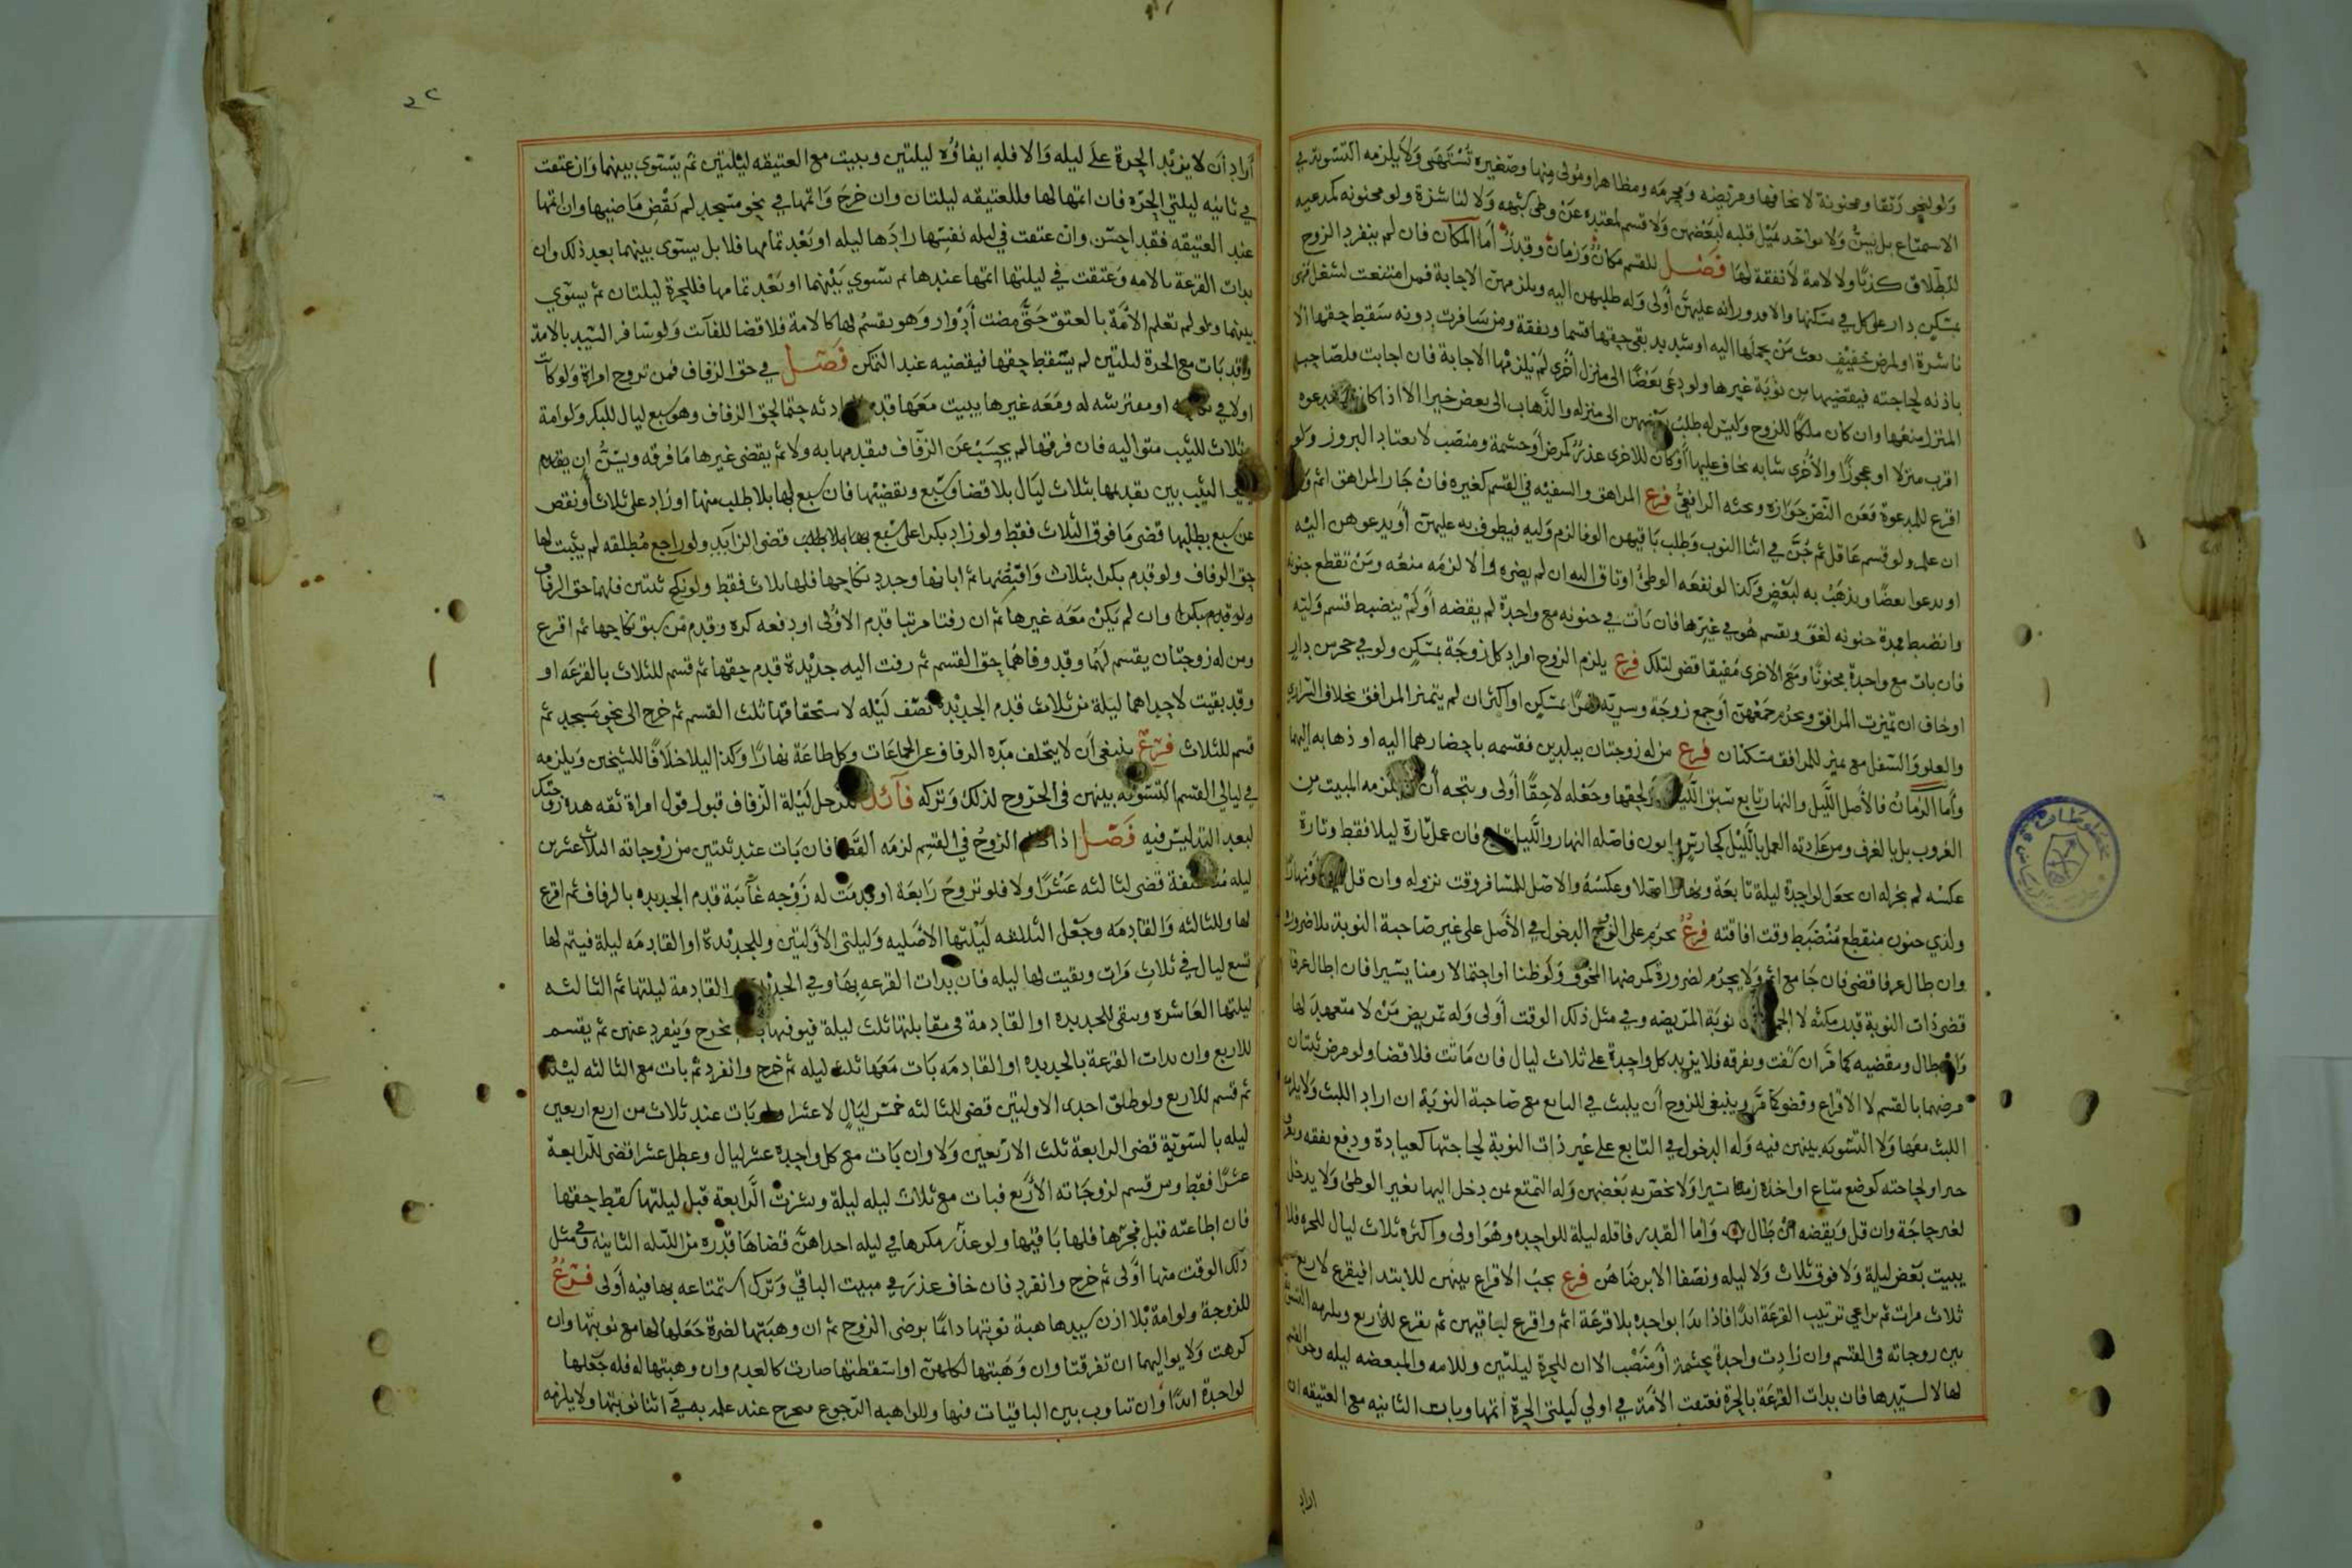 ولو لنحو رتقا ومجنونة لا يخافها ومريضه ومحرمه ومظاهر او مولى منها وصغيره تشتهى ولا يلزمه التسوية في
الاستمتاع بل يسن ولا يواخد بميل قلبه لبعضهن ولا قسم لمعتده عن وطى شبهه ولا لناشزة ولو مجنونه كمدعيه
لطلاق كذبا ولا لامة لا نفقة لها فصل للقسم مكان وزمان وقدر أما المكان فان لم ينفرد الزوج
بمسكن دار على كل في مسكنها والا فدورانه عليهن أولى وله طلبهن اليه ويلزمهن الاجابة فمن امتنعت لشغل فهى
ناشزة او لمرض خفيف بعث من يحملها اليه او شديد بقى حقها قسما ونفقة ومن سافرت بدونه سقط حقها الا
باذنه لحاجته فيقضيها من نوبة غيرها ولو دعى بعضا الى منزل أخرى لم يلزمها الاجابة فان اجابت فلصاحبة
المنزل منعها وان كان ملكا للزوج وليس له طلب بعضهن الى منزله والذهاب الى بعض خيرا الا اذا كان
اقرب منزلا او عجوزا والأخرى شابه يخاف عليها أو كان للاخرى عذر كمرض أو حشمة ومنصب لا تعتاد البروز ولو
اقرع للمدعوة فعن النص جوازه وبحثه الرافعى فرع المراهق والسفيه في القسم كغيره فان جار المراهق اثم وليه
ان علم ولو قسم عاقل ثم جن في اثنا النوب وطلب باقيهن الوفا لزم وليه فيطوف به عليهن أو يدعوهن اليه
او يدعوا بعضا ويذهب به لبعض وكذا لو نفعه الوطئ او تاق اليه ان لم يضره والا لزمه منعه ومن تقطع جنونه
وانضبط فمدة جنونه لغو ويقسم هو في غيرها فان بات في جنونه مع واحدة لم يقضه أو لم ينضبط قسم وليه
فان بات مع واحدة مجنونا ومع الاخرى مفيقا قضى لتلك فرع يلزم الزوج افراد كل زوجة بمسكن ولو في حجر من دار
او خاف ان تميزت المرافق ويحرم جمعهن أو جمع زوجة وسرية قهرا بمسكن او اكثر ان لم يتميز المرافق بخلاف التراضي
والعلو والسفل مع تميز المرافق مسكنان فرع من له زوجتان ببلدين فقسمه باحضارهما اليه او ذهابه اليهما
وأما الزمان فالأصل الليل والنهار تابع سبق الليل ولحقها وجعله لاحقا أولى ويتجه أن يلزمه المبيت من
الغروب بل بالعرف ومن عادته العمل بالليل كحارس واتون فاصله النهار والليل تابع فان عمل تارة ليلا فقط وتارة
عكسه لم يجز له ان يجعل لواحدة ليلة تابعة ونهارا اصلا وعكسه والاصل للمسافر وقت نزوله وان قل
ولذي جنون منقطع منضبط وقت افاقته فرع يحرم على الزوج الدخول في الأصل على غير صاحبة النوبة بلا ضرورة
وان طال عرفا قضى فان جامع اثم ولا يحرم لضرورة كمرضها المخوف ولو ظنا او احتمالا زمنا يسيرا فان اطال عرفا
قضى ذات النوبة قدر مكثه لا الجماع نوبة المريضه وفي مثل ذلك الوقت أولى وله تمريض من لا متعهد لها
وان طال ويقضيه كما مر ان شفت ويفرقه فلا يزيد كل واحدة على ثلاث ليال فان ماتت فلا قضا ولو مرض ثنتان
مرضهما بالقسم لا الاقراع وقضى كما مر وينبغى للزوج أن يلبث في التابع مع صاحبة النوبة ان اراد اللبث ولا يلزمه
اللبث معها ولا التسويه بينهن فيه وله الدخول في التابع على غير ذات النوبة لحاجتها كعيادة ودفع نفقه وتعرف
خبر او لحاجته كوضع متاع او اخذه زمنا يسيرا ولا يخص به بعضهن وله التمتع بمن دخل اليها بغير الوطئ ولا يدخل
لغير حاجة وان قل ويقضه ان طال وأما القدر فاقله ليلة للواحده وهو اولى واكثره ثلاث ليال للحره فلا
يبيت بعض ليلة ولا فوق ثلاث ولا ليله ونصفا الا برضاهن فرع يجب الاقراع بينهن للابتدا فيقرع لاربع
ثلاث مرات ثم يراعي ترتيب القرعة ابدا فاذا بدا بواحده بلا قرعة اثم واقرع لباقيهن ثم يقرع للأربع ويلزمه التسوية
بين زوجاته فى القسم وان زادت واحدة بحشمة أو منصب الا ان للحرة ليلتين وللامه والمبعضه ليله وحق القسم
لها لا لسيدها فان بدات القرعة بالحرة فعتقت الأمة في اولي ليلتى الحرة اتمها وبات الثانيه مع العتيقه ان
اراد
أراد أن لا يزيد الحرة على ليله والا فله ايفاؤه ليلتين ويبيت مع العتيقه ليلتين ثم يستوى بينهما وان عتقت
في ثانيه ليلتي الحره فان اتمها لها فللعتيقه ليلتان وان خرج واتمها في نحو مسجد لم يقض ما مضى وان اتمها
عند العتيقه فقد احسن وان عتقت في ليله نفسها زادها ليله او بعد تمامها فلا بل يسوى بينهما بعد ذلك وان
بدات القرعة بالامه وعتقت في ليلتها اتمها عندها ثم سوي بينهما او بعد تمامها فللحرة ليلتان ثم يسوي
بينهما ولو لم تعلم الأمة بالعتق حتى مضت أدوار وهو يقسم لها كالامة فلا قضا للفآت ولو سافر السيد بالامة
وقد بات مع الحرة ليلتين لم يسقط حقها فيقضيه عند التمكن فصل في حق الزفاف فمن تزوج امراة ولو كانت
اولا في او مفترشه له ومعه غيرها يبيت معها حتما لحق الزفاف وهو سبع ليال للبكر ولو امة
وثلاث للثيب متواليه فان فرقها لم يحسب عن الزفاف فيقدمها به ولا ثم يقضى غيرها ما فرقه ويسن ان يقدم
الثيب بين تقديمها بثلاث ليال بلا قضا وسبع ويقضيها فان سبع لها بلا طلب منها او زاد على ثلاث أو نقص
عن سبع بطلبها قضى ما فوق الثلاث فقط ولو زاد بكرا على سبع بلا طلب قضى الزايد ولو راجع مطلقه لم يثبت لها
حق الزفاف ولو قدم بكرا بثلاث واقتضها ثم ابانها وجدد نكاحها فلها ثلاث فقط ولو نكح ثنتين فلهما حق الزفاف
ولو قدم بكرا وان لم يكن معه غيرها ثم ان زفتا مرتبا قدم الاولى او دفعه كره وقدم من سبق نكاحها ثم اقرع
ومن له زوجتان يقسم لهما وقد وفاهما حق القسم ثم زفت اليه جديدة قدم حقها ثم قسم للثلاث بالقرعه او
وقد بقيت لاحداهما ليلة من ثلاث قدم الجديدة نصف ليله لاستحقاقها ثلث القسم ثم خرج الى نحو مسجد ثم
قسم للثلاث فرع ينبغي أن لا يتخلف مده الزفاف عن الجماعات وكل طاعة نهارا وكذا ليلا خلافا للشيخين ويلزمه
في ليالي القسم التسويه بينهن فى الخروج لذلك وتركه فآئدة للرجل ليلة الزفاف قبول قول امراة ثقه هذه زوجتك
لبعد التدليس فيه فصل اذا ظلم الزوج في القسم لزمه القضا فان بات عند ثنتين من زوجاته الثلاث عشرين
ليله قضى لثالثه عشرا ولا فلو تزوج رابعة او قدمت له زوجه غآئبة قدم الجديده بالزفاف ثم اقرع
لها وللثالثه والقادمه وجعل الثالثه ليلتها الاصليه وليلتى الأوليتين وللجديدة او القادمه ليلة فيتم لها
تسع ليال في ثلاث مرات وبقيت لها ليله فان بدات القرعه بها وفي القادمة ليلتها ثم الثالثه
ليلتها العاشره ويبقى للجديده او القادمة فى مقابلتها ثلث ليلة فيوفيها يخرج وينفرد عنهن ثم يقسم
للاربع وان بدات القرعة بالجديده او القادمه بات معها ثلث ليله ثم خرج وانفرد ثم بات مع الثالثه ليله
ثم قسم للاربع ولو طلق احدى الاوليتين قضى للثالثه خمس ليال لا عشرا ولو بات عند ثلاث من اربع اربعين
ليله بالسوية قضى الرابعة ثلث الاربعين ولا وان بات مع كل واحدة عشر ليال وعطل عشرا قضى للرابعة
عشرا فقط ومن قسم لزوجاته الأربع فبات مع ثلاث ليله ليلة ونشزت الرابعة قبل ليلتها سقط حقها
فان اطاعته قبل فجرها فلها باقيها ولو عذر مكرها في ليله احداهن قضاها قدره من الليله الثانيه وفي مثل
ذلك الوقت منها أولى ثم خرج وانفرد فان خاف عذر في مبيت الباقي وترك استمتاعه بها فيه أولى فرع
للزوجة ولو امة بلا اذن سيدها هبة نوبتها دائما برضى الزوج ثم ان وهبتها لضرة جعلها لها مع نوبتها وان
كرهت ولا يواليهما ان تفرقتا وان وهبتها لكلهن او اسقطتها صارت كالعدم وان وهبتها له فله جعلها
لواحدة ابدا وان تناوب بين الباقيات فيها وللواهبه الرجوع فيخرج عند علمه به في أثنا نوبتها ولا يلزمه